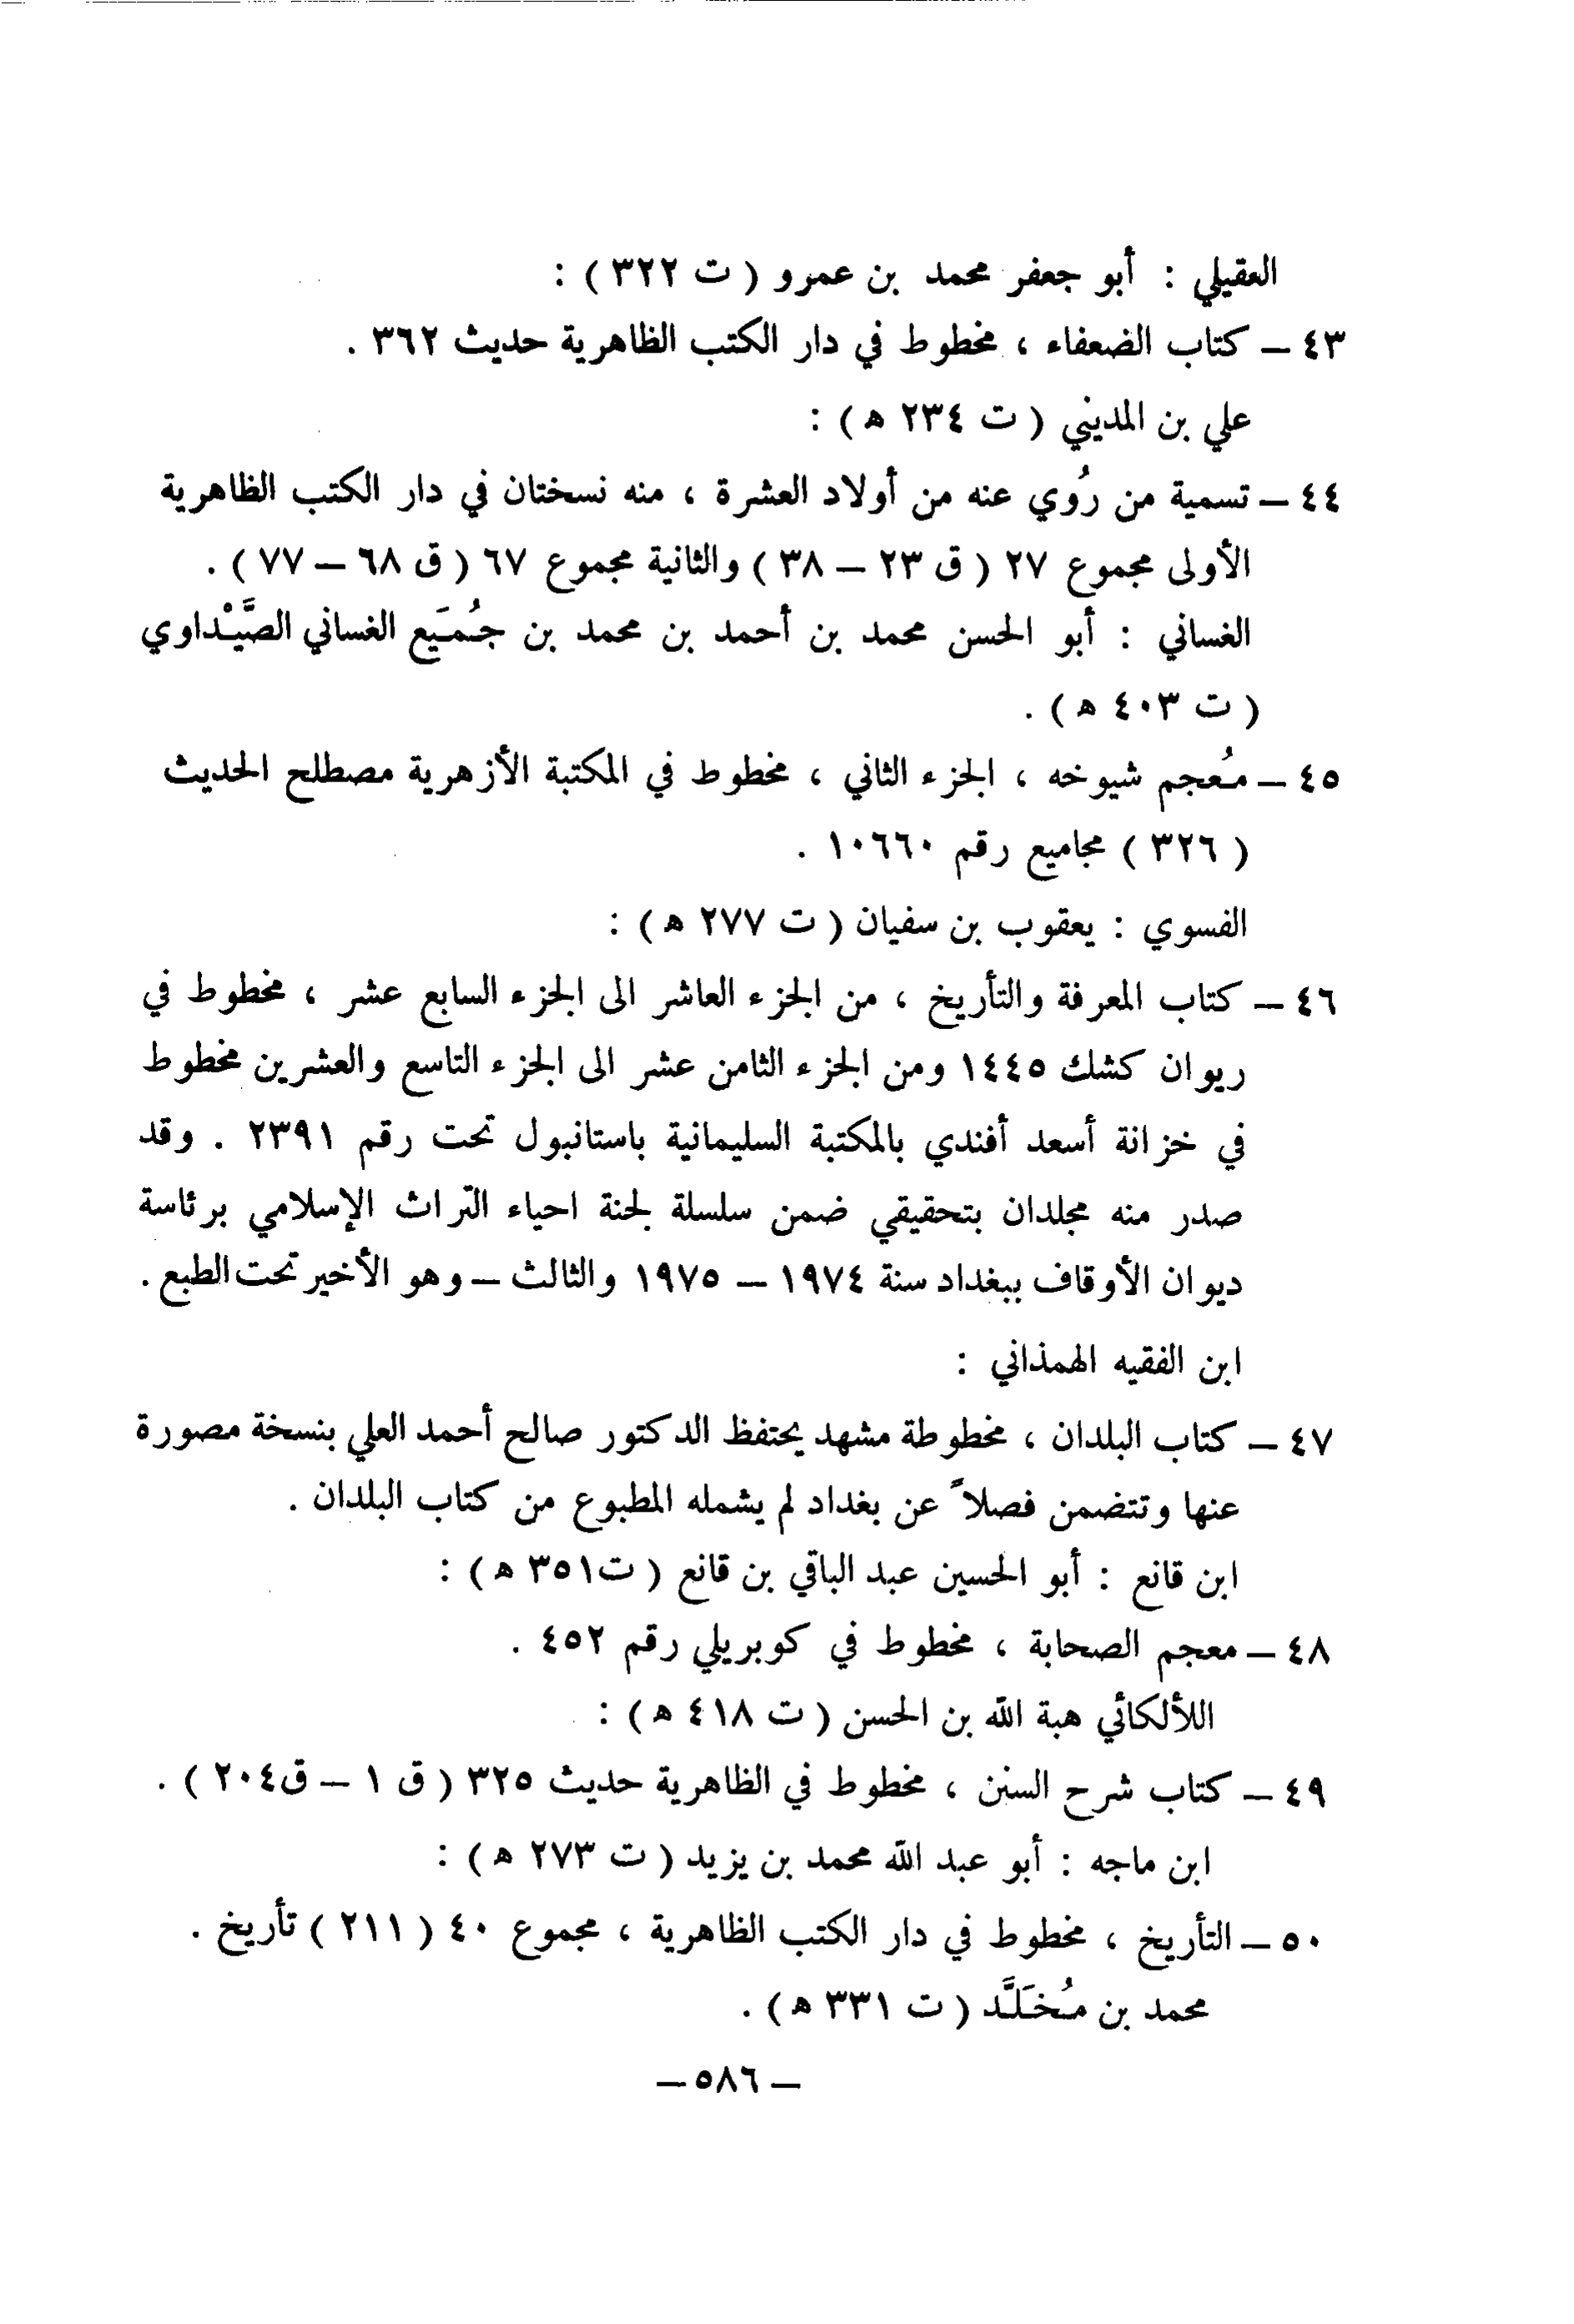 العقيلي : أبو جعفر محمد بن عمرو ( ت ٣٢٢ ) :
٤٣ – كتاب الضعفاء ، مخطوط في دار الكتب الظاهرية حديث ٣٦٢ .
علي بن المديني ( ت ٢٣٤ ه ) :
٤٤ – تسمية من رُوي عنه من أولاد العشرة ، منه نسختان في دار الكتب الظاهرية
الأولى مجموع ٢٧ ( ق ٢٣ – ٣٨ ) والثانية مجموع ٦٧ ( ق ٦٨ – ٧٧ ) .
الغساني : أبو الحسن محمد بن أحمد بن محمد بن جُمَيع الغساني الصَّيْداوي
( ت ٤٠٣ ه ) .
٤٥ – مُعجم شيوخه ، الجزء الثاني ، مخطوط في المكتبة الأزهرية مصطلح الحديث
( ٣٢٦ ) مجاميع رقم ١٠٦٦٠ .
الفسوي : يعقوب بن سفيان ( ت ٢٧٧ ه ) :
٤٦ – كتاب المعرفة والتأريخ ، من الجزء العاشر الى الجزء السابع عشر ، مخطوط في
ريوان كشك ١٤٤٥ ومن الجزء الثامن عشر الى الجزء التاسع والعشرين مخطوط
في خزانة أسعد أفندي بالمكتبة السليمانية باستانبول تحت رقم ٢٣٩١ . وقد
صدر منه مجلدان بتحقيقي ضمن سلسلة لجنة احياء التراث الإسلامي برئاسة
ديوان الأوقاف ببغداد سنة ١٩٧٤ – ١٩٧٥ والثالث – وهو الأخير تحت الطبع .
ابن الفقيه الهمذاني :
٤٧ – كتاب البلدان ، مخطوطة مشهد يحتفظ الدكتور صالح أحمد العلي بنسخة مصورة
عنها وتتضمن فصلاً عن بغداد لم يشمله المطبوع من كتاب البلدان .
ابن قانع : أبو الحسين عبد الباقي بن قانع ( ت٣٥١ ه ) :
٤٨ – معجم الصحابة ، مخطوط في كوبريلي رقم ٤٥٢ .
اللألكائي هبة الله بن الحسن ( ت ٤١٨ ه ) :
٤٩ – كتاب شرح السنن ، مخطوط في الظاهرية حديث ٣٢٥ ( ق ١ – ق٢٠٤ ) .
ابن ماجه : أبو عبد الله محمد بن يزيد ( ت ٢٧٣ ه ) :
٥٠ – التأريخ ، مخطوط في دار الكتب الظاهرية ، مجموع ٤٠ ( ٢١١ ) تأريخ .
محمد بن مُخَلَّد ( ت ٣٣١ ه ) .
– ٥٨٦ –